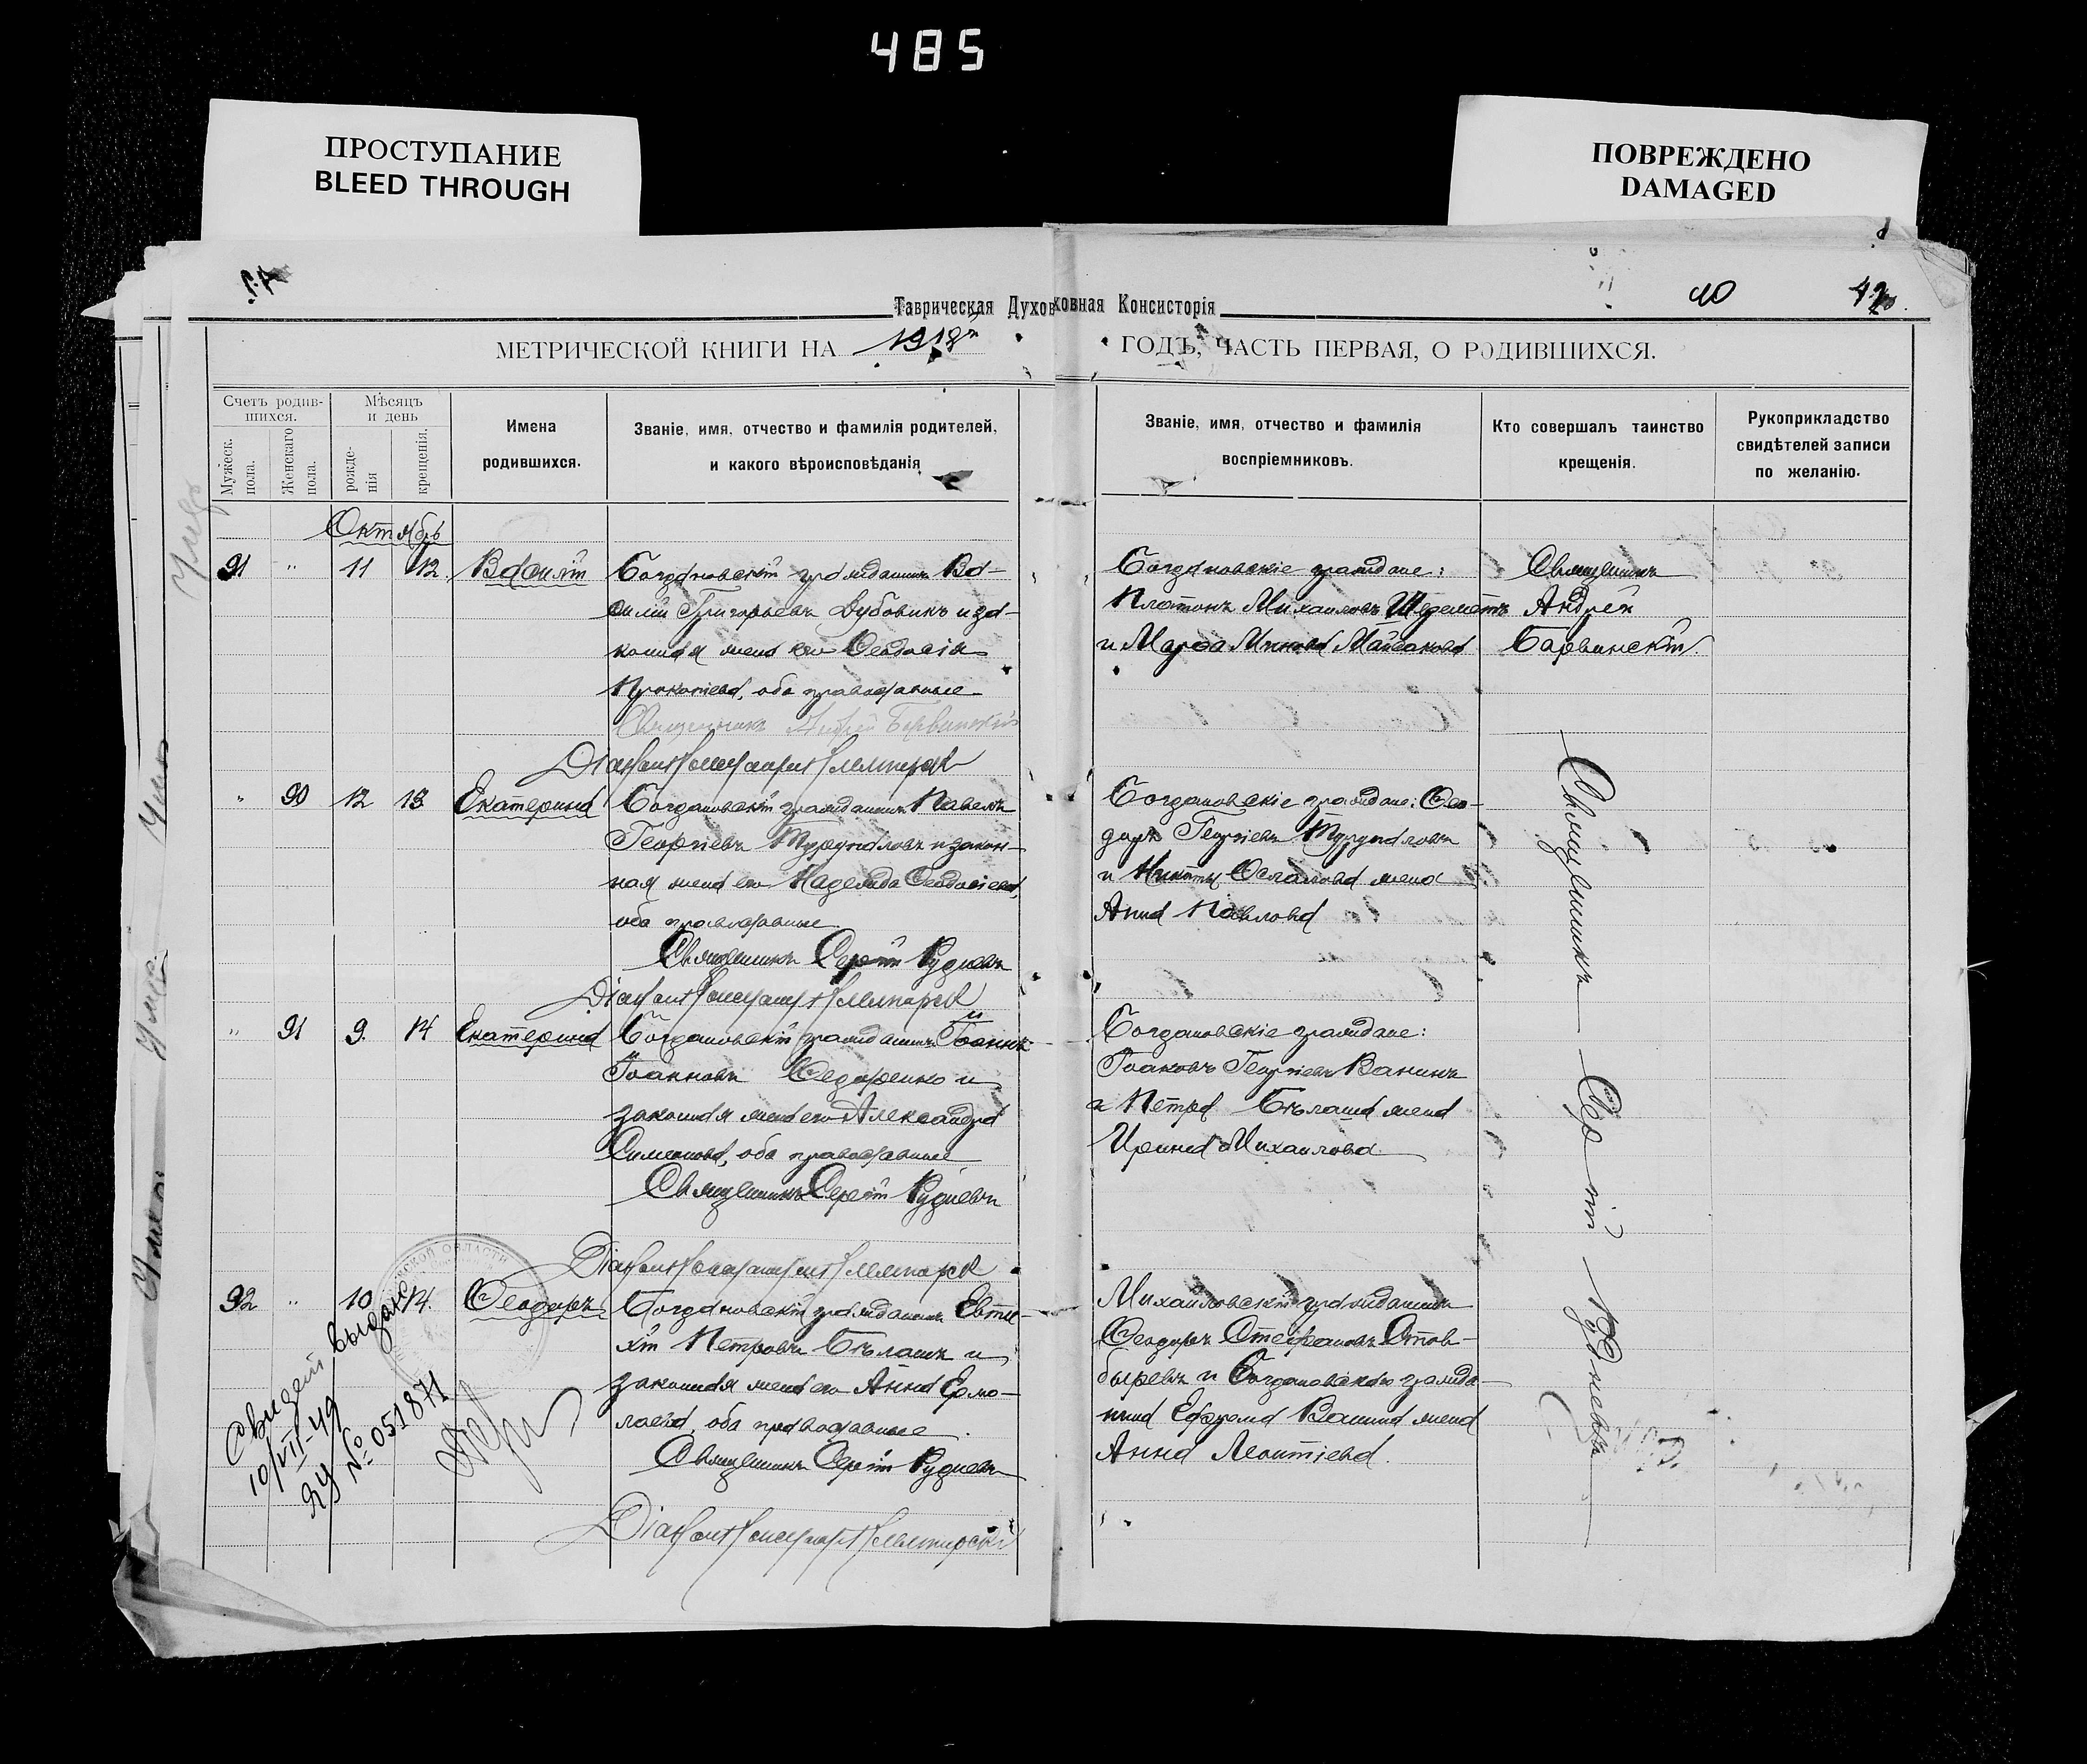 485
ПРОСТУПАНИЕ
BLEED THROUGH
ПОВРЕЖДЕНО
DAMAGED
40
Таврическая Духовная Консисторія
МЕТРИЧЕСКОЙ КНИГИ НА 1918й ГОДЪ, ЧАСТЬ ПЕРВАЯ, О РОДИВШИХСЯ.
Счетъ родив-
шихся.
Мужеск.
пола.
Женскаго
пола.
Мѣсяцъ
и день
рожде-
нія
крещенія.
Имена
родившихся.
Званіе, имя, отчество и фамилія родителей,
и какого вѣроисповѣданія
Званіе, имя, отчество и фамилія
воспріемниковъ.
Кто совершалъ таинство
крещенія.
Рукоприкладство
свидѣтелей записи
по желанію.
Октябрь
91 " 11 12. Василій
Богдановскій гражданинъ Ва-
силій Григорьевъ Дубовикъ и за-
конная жена его Ѳеодосія
Прокопіева, оба православные
Священникъ Андрей Барвинскій
Богдановскіе граждане:
Платонъ Михаиловъ Шереметъ
и Марѳа Минова
Священникъ
Андрей
Барвинскій.
" 90 12 13 Екатерина
Богдановскій гражданинъ Павелъ
Георгіевъ и закон-
ная жена его Надежда Ѳеодосіева,
оба православные
Священникъ Сергій Рудневъ
Богдановскіе граждане: Ѳео-
доръ Георгіевъ
и Никиты жена
Анна Павлова
" 91 9. 14 Екатерина
Богдановскій гражданинъ Іоаннъ
Іоанновъ Ѳедоренко и
законная жена его Александра
Симеонова, оба православные
Священникъ Сергій Рудневъ
Богдановскіе граждане:
Іаковъ Георгіевъ Ванинъ
и Петра Бѣлаша жена
Ирина Михаилова
92 " 10 14. Ѳеодоръ
Богдановскій гражданинъ Евти-
хій Петровъ Бѣлашъ и
законная жена его Анна Ермо-
лаева, оба православные.
Священникъ Сергій Рудневъ
Михайловскій гражданинъ
Ѳеодоръ Стефановъ
и Богдановского гражда-
нина Ефрема Ванина жена
Анна Леонтіева.
Священникъ Сергій Рудневъ
Свидет выдано
10/VII-49
ЯУ № 051871